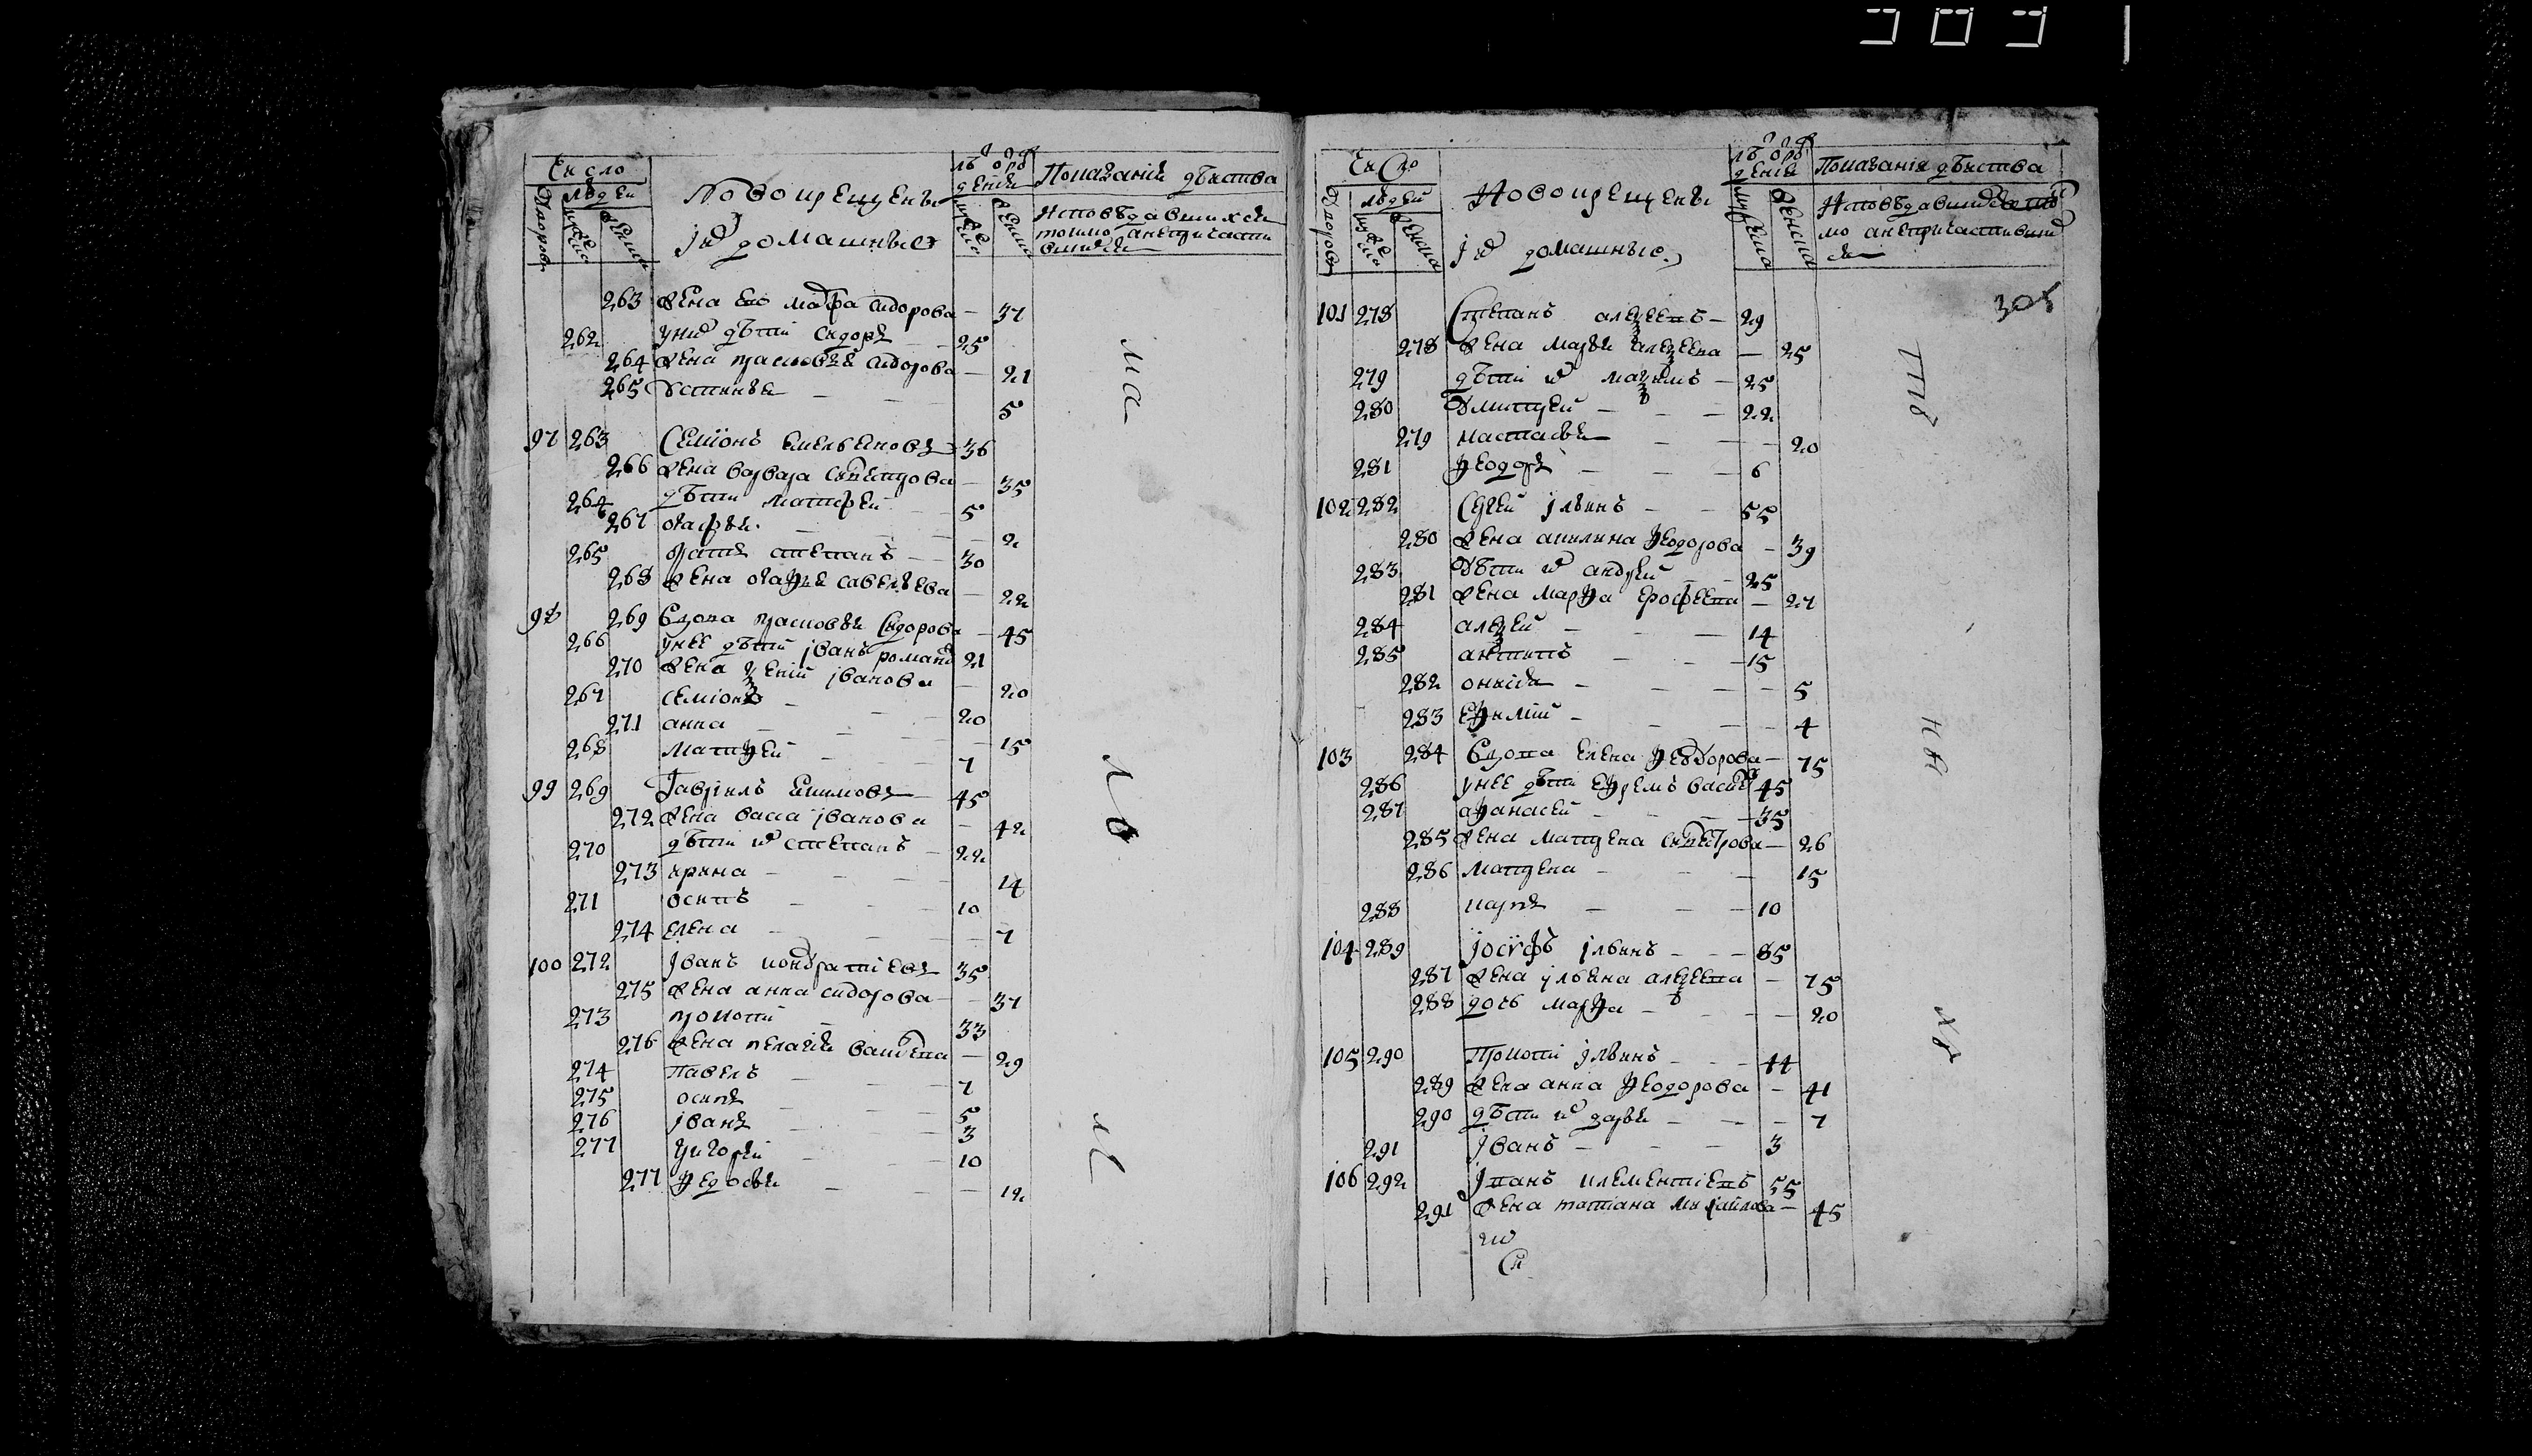 Число
людей
Дворовъ
мужеска
женска
Новокрещены
и их домашныя
лѣта от рождения
мужеска
женска
Показания дѣйства
Исповѣдавшихся
токмо а непричасти
вшихся
263 жена его марфа сидорова — 37
262 у них дѣти сидоръ — 25
264 жена прасковья сидорова — 21
265 устинья — 5
97 263 Семионъ емельяновъ 36
266 жена варвара димитрова — 35
264 дѣти матфеи — 5
267 агафья — 2
265 братъ степанъ — 30
268 жена агафья савельева — 22
98 269 вдова прасковья сидорова — 45
266 у нее дѣти иванъ романов 21
270 жена ксения иванова — 20
267 семионъ — 20
271 анна — 15
268 матфеи — 7
99 269 Гавриилъ екимовъ — 45
272 жена васса иванова — 42
270 дѣти их степанъ — 22
273 ирина — 14
271 осипъ — 10
274 елена — 7
100 272 иванъ кондратиевъ 35
275 жена анна сидорова — 37
273 прокопи — 33
276 жена пелагия василева — 29
274 павелъ — 7
275 осипъ — 5
276 иванъ — 3
277 григореи — 10
277 федосья — 12
Число
людей
Дворовъ
мужеска
женска
Новокрещены
и их домашные
лѣта от рождения
мужеска
женска
Показания дѣйства
Исповѣдавшихся ток
мо а непричастивших
ся
305
101 278 Степанъ алексеевъ — 29
278 жена марья алексеева — 25
279 дѣти их максимъ — 25
280 Дмитреи — 22
279 настасья — 20
281 федоръ — 6
102 282 Сергеи ильинъ — 55
280 жена акилина феодорова — 39
283 Дѣти их андреи — 25
281 жена марфа ерофеева — 27
284 алексеи — 14
285 антипъ — 15
282 онисья — 5
283 ефимия — 4
103 284 вдова елена феодорова — 75
286 у нее дѣти ефремъ васил 45
287 афанасеи — 35
285 жена матрена димитрова — 26
286 матрена — 15
288 карпъ — 10
104 289 иосифъ ильинъ — 85
287 жена ульяна алексеева — 75
288 дочь марфа — 20
105 290 Прокопи ильинъ — 44
289 жена анна феодорова — 41
290 дѣти их дарья — 7
291 иванъ — 3
106 292 иванъ клементиевъ 55
291 жена татиана михайлова — 45